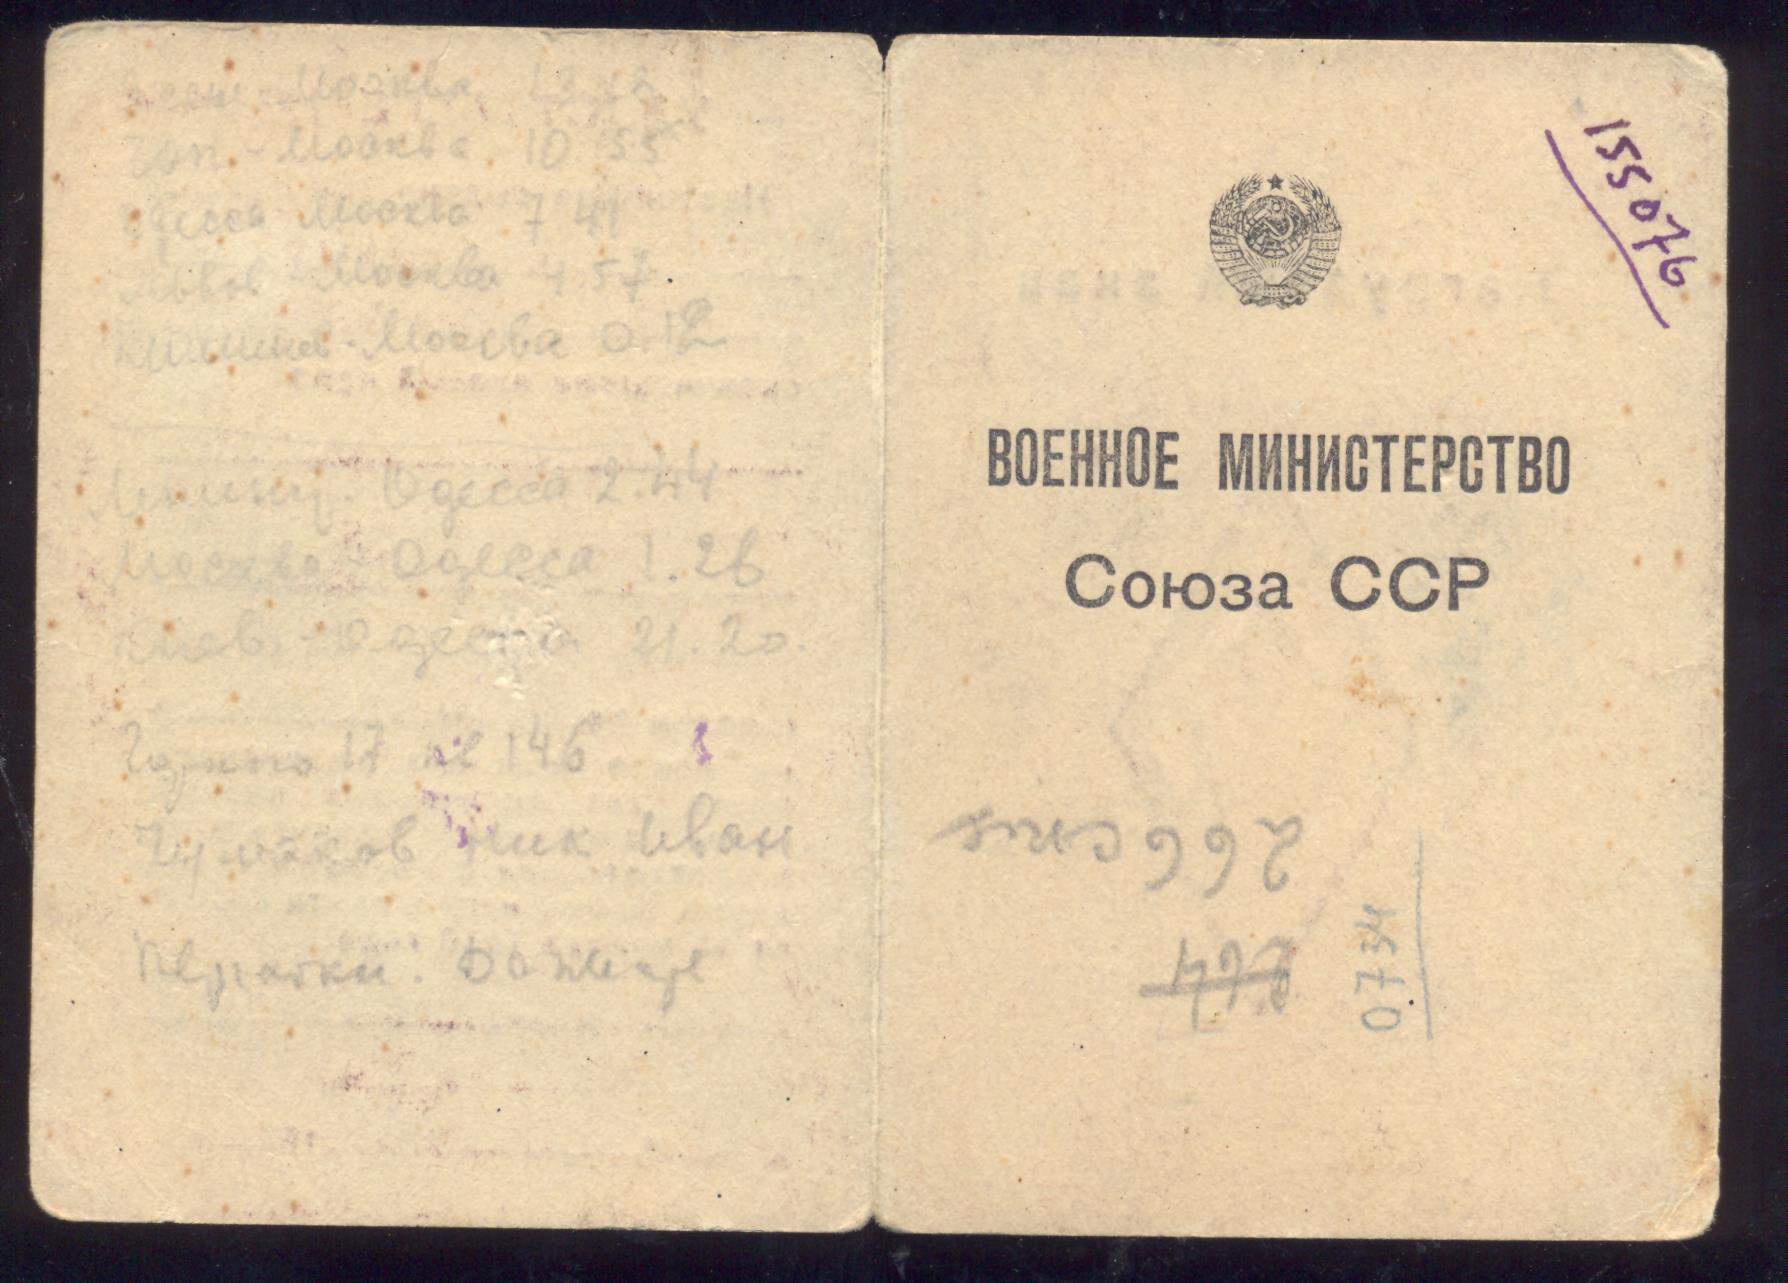 Москва 12 12
Москва 10 55
Одесса - Москва 7 41
Львов - Москва 4 57
Кишинев - Москва 0.12
Одесса 2.44
Москва - Одесса 1.26
Киев - Одесса 21.20.
17 кв 146
Чумаков Ник Иван
155076
ВОЕННОЕ МИНИСТЕРСТВО
Союза ССР
266
0734